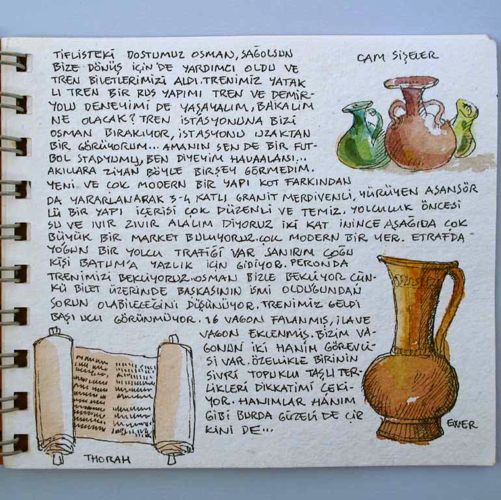 TİFLİSTEKİ DOSTUMUZ OSMAN, SAĞOLSUN
BİZE DÖNÜŞ İÇİN DE YARDIMCI OLDU VE
TREN BİLETLERİMİZİ ALDI. TRENİMİZ YATAK
LI TREN BİR RUS YAPIMI TREN VE DEMİR-
YOLU DENEYİMİ DE YAŞAYALIM, BAKALIM
NE OLACAK? TREN İSTASYONUNA BİZİ
OSMAN BIRAKIYOR, İSTASYONU UZAKTAN
BİR GÖRÜYORUM... AMANIN SEN DE BİR FUT-
BOL STADYUMU, BEN DİYEYİM HAVAALANI...
AKILLARA ZİYAN BÖYLE BİRŞEY GÖRMEDİM.
YENİ VE ÇOK MODERN BİR YAPI KOT FARKINDAN
DA YARARLANARAK 3-4 KATLI GRANİT MERDİVENLİ, YÜRÜYEN ASANSÖR
LÜ BİR YAPI İÇERİSİ ÇOK DÜZENLİ VE TEMİZ. YOLCULUK ÖNCESİ
SU VE IVIR ZIVIR ALALIM DİYORUZ İKİ KAT İNİNCE AŞAĞIDA ÇOK
BÜYÜK BİR MARKET BULUYORUZ. ÇOK MODERN BİR YER. ETRAFDA
YOĞUN BİR YOLCU TRAFİĞİ VAR SANIRIM ÇOĞU
KİŞİ BATUM'A YAZLIK İÇİN GİDİYOR. PERONDA
TRENİMİZİ BEKLİYORUZ. OSMAN BİZLE BEKLİYOR ÇÜN-
KÜ BİLET ÜZERİNDE BAŞKASININ İSMİ OLDUĞUNDAN
SORUN OLABİLECEĞİNİ DÜŞÜNÜYOR. TRENİMİZ GELDİ
BAŞI UCU GÖRÜNMÜYOR. 16 VAGON FALANMIŞ, İLAVE
VAGON EKLENMİŞ. BİZİM VA-
GONUN İKİ HANIM GÖREVLİ-
Sİ VAR. ÖZELLİKLE BİRİNİN
SİVRİ TOPUKLU TAŞLI TER-
LİKLERİ DİKKATİMİ ÇEKİ-
YOR. HANIMLAR HANIM
GİBİ BURDA GÜZELİ DE ÇİR
KİNİ DE...
CAM ŞİŞELER
THORAH
EWER